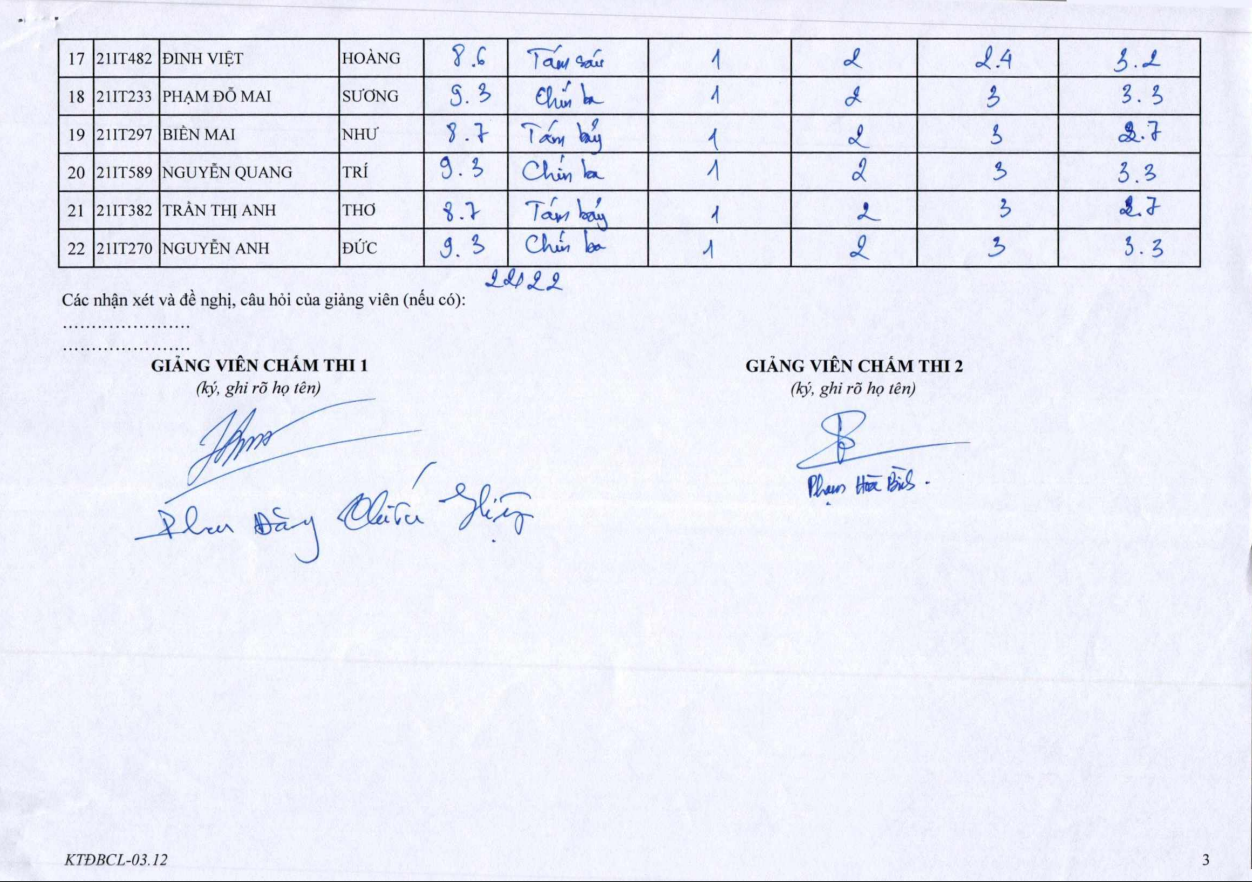 17 21IT482 ĐINH VIỆT HOÀNG 8.6 Tám sáu 1 2 2.4 3.2
18 21IT233 PHẠM ĐỖ MAI SƯƠNG 9.3 Chín ba 1 2 3 3.3
19 21IT297 BIỆN MAI NHƯ 8.7 Tám bảy 1 2 3 2.7
20 21IT589 NGUYỄN QUANG TRÍ 9.3 Chín ba 1 2 3 3.3
21 21IT382 TRẦN THỊ ANH THƠ 8.7 Tám bảy 1 2 3 2.7
22 21IT270 NGUYỄN ANH ĐỨC 9.3 Chín ba 1 2 3 3.3
Các nhận xét và đề nghị, câu hỏi của giảng viên (nếu có):
......................
......................
GIẢNG VIÊN CHẤM THI 1 GIẢNG VIÊN CHẤM THI 2
(ký, ghi rõ họ tên) (ký, ghi rõ họ tên)
Phạm Hồ
Phan Đăng
KTĐBCL-03.12 3